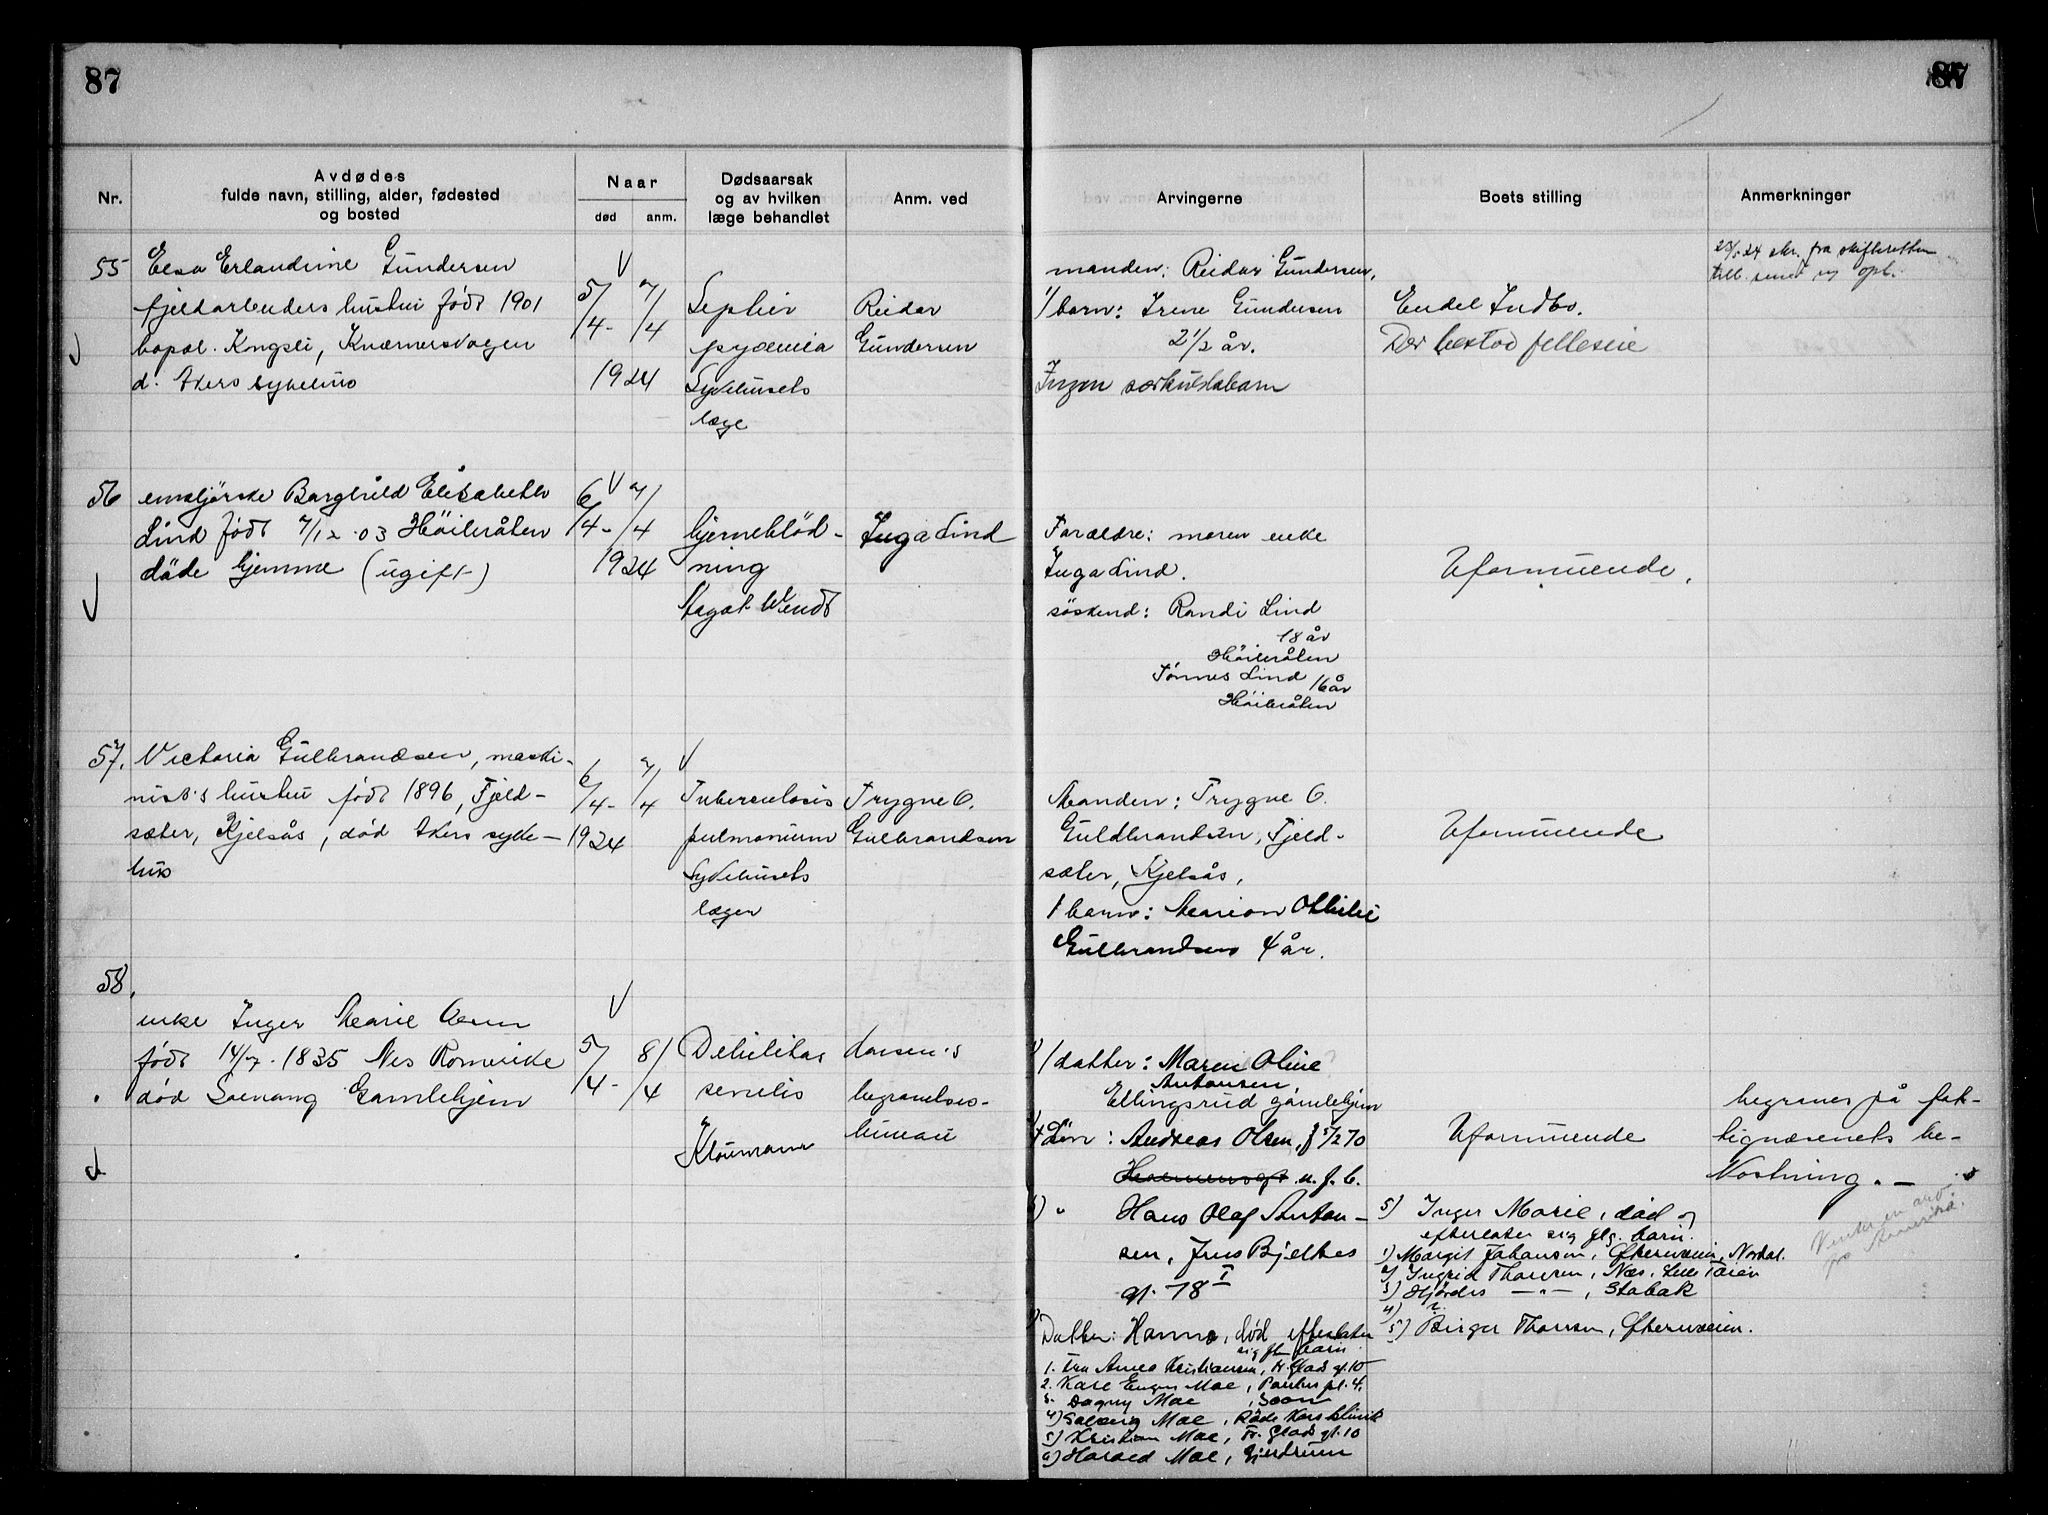 87
87
Nr.
Avdødes
fulde navn, stilling, alder, fødested
og bosted
Naar
død
anm.
Dødsaarsak
og av hvilken
læge behandlet
Anm. ved
Arvingerne
Boets stilling
Anmerkninger
55
Elsa Erlandine Gundersen
fjeldarbeiders hustru født 1901
bopæl. Kongsli, Kværnersvogen
d. Akers sykehus
5/4 - 7/4
1924
Sephis
pyæmia
Sykehusets
læge
Reidar
Gundersen
manden: Reidar Gundersen,
1/ barn: Irene Gundersen
2 1/2 år.
Ingen særkulsbarn
Endel Indbo.
Der bestod felleseie
24 skr. fra skifteretten
56
Borghild Elisabeth
Lind født 7/12 03 Høibråten
døde hjemme (ugift)
6/4 - 7/4
1924
hjerneblød-
ning
Wendt
Inga Lind
Forældre: moren enke
Inga Lind.
søskend: Randi Lind
18 år
Høibråten
Tønnes Lind
16 år
Høibråten
Uformuende.
57.
Victoria Gulbrandsen, maski-
nist's hustru født 1896, Fjeld-
sæter, Kjelsås, død Akers syke-
hus
6/4 - 7/4
1924
Tuberculosis
pulmonium
Sykehusets
læger
Trygve O.
Gulbrandsen
Manden: Trygve O.
Guldbrandsen, Fjeld-
sæter, Kjelsås,
1 barn: Marion Othilie
Gulbrandsen 4 år.
Uformuende
58.
enke Inger Marie Olsen
født 14/7 - 1835 Nes Romerike
død Solvang Gamlehjem
5/4 - 8/4
Debilitas
senilis
Kloumann
Larsen's
begravelses-
bureau
1/ datter: Maren Oline
Antonsen,
Ellingsrud gamlehjem
Søn: Andreas Olsen, f 5/2 70
u. f. b.
" Hans Olaf Anton-
sen, Jens Bjelkes
gt. 78 I
Datter: Hanna, død, efterlater
sig flg barn
1. Fru Anna Kristiansen, Fr. Glads gt. 10
2. Kare Moe, Paulus pl. 4.
3. Dagny Moe, Soon
4) Solveig Moe, Røde Kors klinik
5) Kristian Moe, Fr. Glads gt. 10
6) Harald Moe, Gjerdrum
Uformuende
5) Inger Marie, død og
efterlater sig flg. barn.
1) Margit Johansen, Ekernveien, Nordal.
2) Ingrid Thoresen, Næs, Lille Tøien
3) Hjørdis —"—, Stabæk
4) ?
5) Birger Thoresen, Ekernveien.
begraves på fat-
tigvæsenets be-
kostning. —
Venter en arv
fra Amerika.